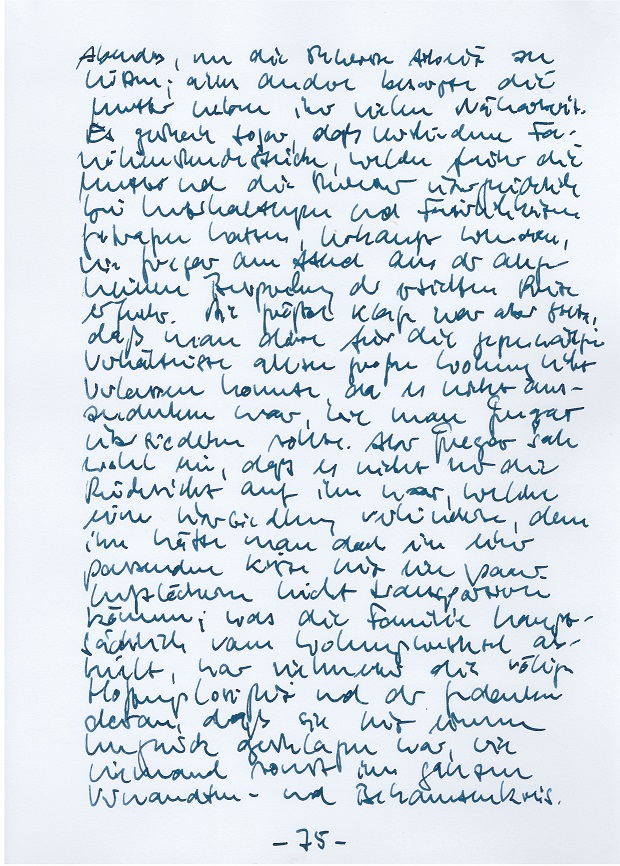 Abends, um die schwerste Arbeit zu
leisten; alles andere besorgte die
Mutter neben ihrer vielen Näharbeit.
Es geschah sogar, daß verschiedene Fa-
milienschmuckstücke, welche früher die
Mutter und die Schwester überglücklich
bei Unterhaltungen und Feierlichkeiten
getragen hatten, verkauft wurden,
wie Gregor am Abend aus der allge-
meinen Besprechung der erzielten Preise
erfuhr. Die größte Klage war aber stets,
daß man diese für die gegenwärtigen
Verhältnisse allzu große Wohnung nicht
verlassen konnte, da es nicht aus-
zudenken war, wie man Gregor
übersiedeln sollte. Aber Gregor sah
wohl ein, daß es nicht nur die
Rücksicht auf ihn war, welche
eine Übersiedlung verhinderte, denn
ihn hätte man doch in einer
passenden Kiste mit ein paar
Luftlöchern leicht transportieren
können; was die Familie haupt-
sächlich vom Wohnungswechsel ab-
hielt, war vielmehr die völlige
Hoffnungslosigkeit und der Gedanke
daran, daß sie mit einem
Unglück geschlagen war, wie
niemand sonst im ganzen
Verwandten- und Bekanntenkreis.
- 75 -